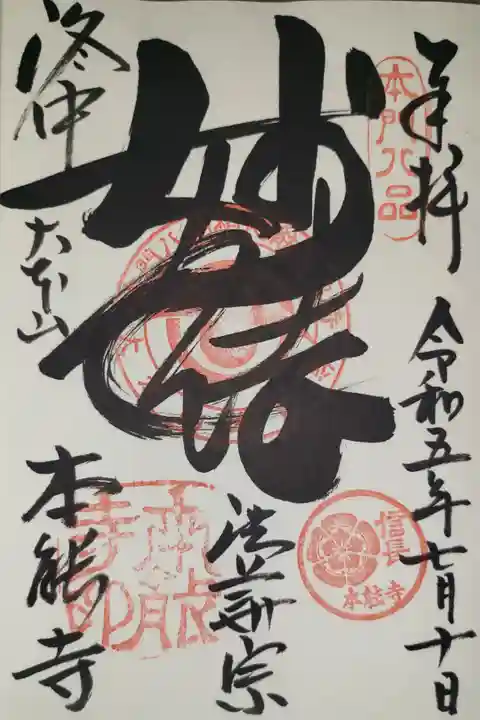 奉拝
本門八品
令和五年七月十日
信長
本能寺
妙法
法華宗
洛中
大本山
本能寺
本能寺印